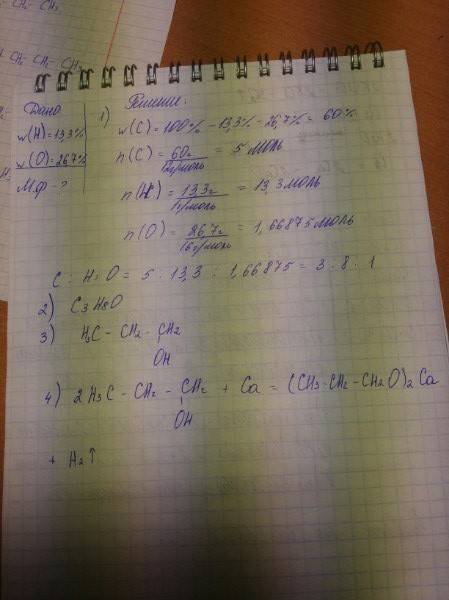 CH₂-CH₃
CH₂ CH₂ CH₃
Дано
w(H)=13,3%
w(O)=26,7%
М.ф - ?
Решение:
1) w(C)=100% - 13,3% - 26,7% = 60%
n(C) = 60г / 12г/моль = 5 моль
n(H) = 13,3г / 1г/моль = 13,3 моль
n(O) = 26,7г / 16г/моль = 1,66875 моль
C : H : O = 5 : 13,3 : 1,66875 = 3 : 8 : 1
2) C₃H₈O
3) H₃C - CH₂ - CH₂
OH
4) 2H₃C - CH₂ - CH₂ + Ca = (CH₃-CH₂-CH₂O)₂Ca
OH
+ H₂↑